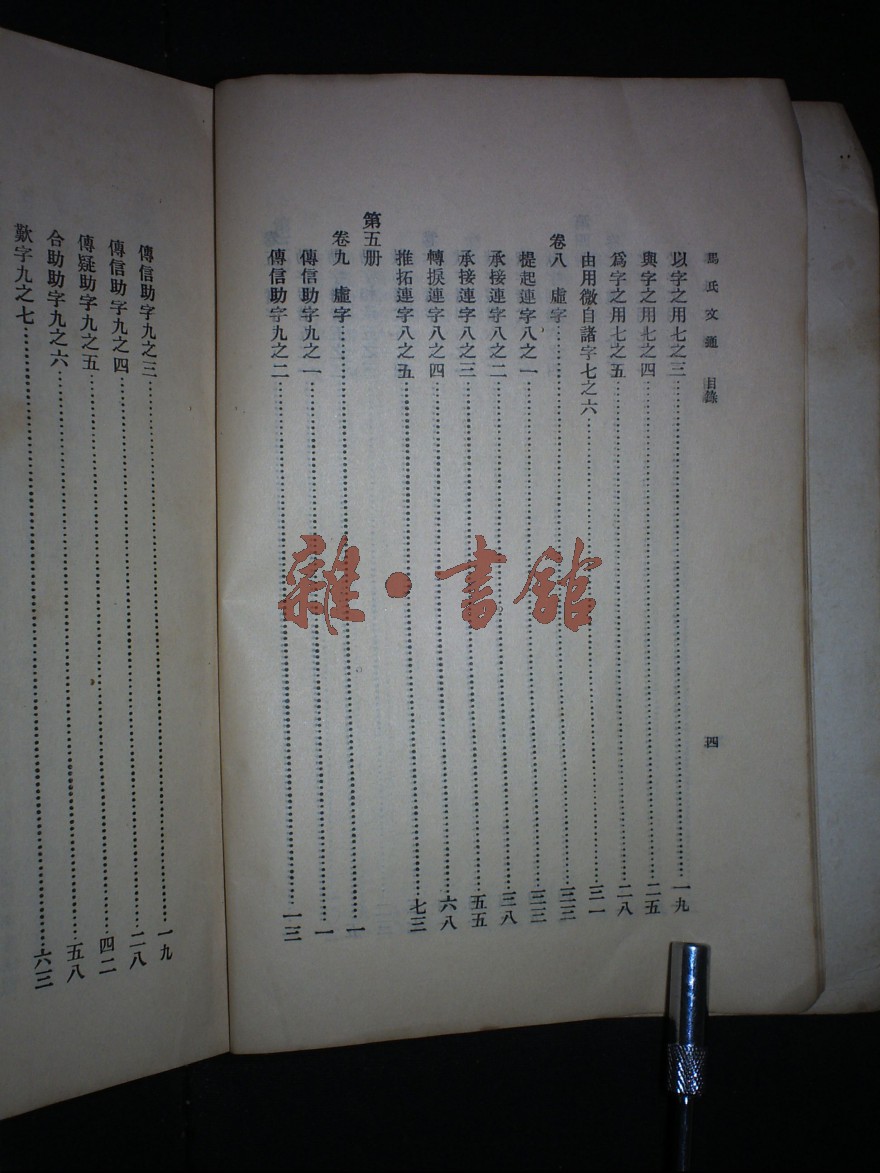 馬氏文通 目錄 四
以字之用七之三 一九
與字之用七之四 二五
爲字之用七之五 二八
由用微自諸字七之六 三一
卷八 虛字 三三
提起連字八之一 三三
承接連字八之二 三八
承接連字八之三 五五
轉捩連字八之四 六八
推拓連字八之五 七三
第五册
卷九 虛字 一
傳信助字九之一 一
傳信助字九之二 一三
傳信助字九之三 一九
傳信助字九之四 二八
傳疑助字九之五 四二
合助助字九之六 五八
歎字九之七 六三
雜·書館